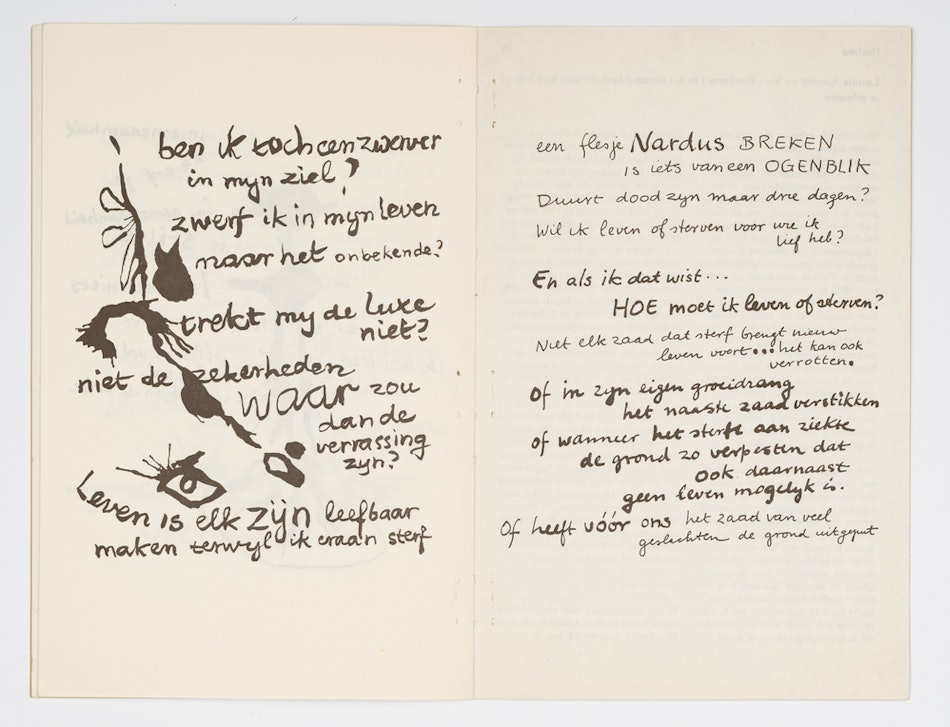 ben ik toch een zwerver
in mijn ziel?
zwerf ik in mijn leven
naar het onbekende?
trekt my de luxe
niet?
niet de zekerheden
waar zou
dan de
verrassing
zyn?
Leven is elk zijn leefbaar
maken terwyl ik eraan sterf
een flesje Nardus BREKEN
is iets van een OGENBLIK
Duurt dood zyn maar drie dagen?
Wil ik leven of sterven voor wie ik
lief heb?
En als ik dat wist...
HOE moet ik leven of sterven?
Niet elk zaad dat sterf brengt nieuw
leven voort... het kan ook
verrotten.
Of in zyn eigen groeidrang
het naaste zaad verstikken
of wanneer het sterft aan ziekte
de grond zo verpesten dat
ook daarnaast
geen leven mogelyk is.
Of heeft vóór ons het zaad van veel
geslachten de grond uitgeput